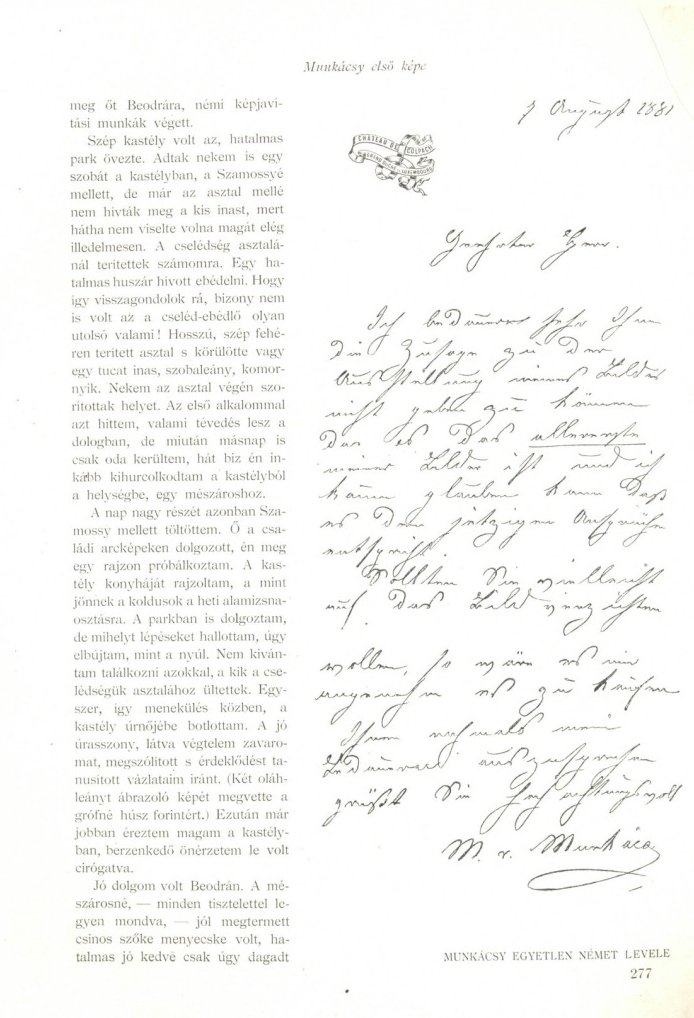 Munkácsy első képe
meg őt Beodrára, némi képjaví-
tási munkák végett.
Szép kastély volt az, hatalmas
park övezte. Adtak nekem is egy
szobát a kastélyban, a Szamossyé
mellett, de már az asztal mellé
nem hívták meg a kis inast, mert
hátha nem viselte volna magát elég
illedelmesen. A cselédség asztalá-
nál terítettek számomra. Egy ha-
talmas huszár hívott ebédelni. Hogy
így visszagondolok rá, bizony nem
is volt az a cseléd-ebédlő olyan
utolsó valami! Hosszú, szép fehé-
ren terített asztal s körülötte vagy
egy tucat inas, szobaleány, komor-
nyik. Nekem az asztal végén szo-
rítottak helyet. Az első alkalommal
azt hittem, valami tévedés lesz a
dologban, de miután másnap is
csak oda kerültem, hát biz én in-
kább kihurcolkodtam a kastélyból
a helységbe, egy mészároshoz.
A nap nagy részét azonban Sza-
mossy mellett töltöttem. Ő a csa-
ládi arcképeken dolgozott, én meg
egy rajzon próbálkoztam. A kas-
tély konyháját rajzoltam, a mint
jönnek a koldusok a heti alamizsna-
osztásra. A parkban is dolgoztam,
de mihelyt lépéseket hallottam, úgy
elbújtam, mint a nyúl. Nem kíván-
tam találkozni azokkal, a kik a cse-
lédségük asztalához ültettek. Egy-
szer, így menekülés közben, a
kastély úrnőjébe botlottam. A jó
úrasszony, látva végtelem zavaro-
mat, megszólított s érdeklődést ta-
nusított vázlataim iránt. (Két oláh-
leányt ábrázoló képét megvette a
grófné húsz forintért.) Ezután már
jobban éreztem magam a kastély-
ban, berzenkedő önérzetem le volt
cirógatva.
Jó dolgom volt Beodrán. A mé-
szárosné, — minden tisztelettel le-
gyen mondva, — jól megtermett
csinos szőke menyecske volt, ha-
talmas jó kedve csak úgy dagadt
7 August 1881
CHÂTEAU DE COLPACH
Geehrter Herr.
Ich bedauere sehr Ihnen
die Zusage zu der
Ausstellung meines Bildes
nicht geben zu können
da es das allererste
meiner Bilder ist und ich
kaum glauben kann daß
es den jetzigen Ansprüchen
entspricht.
Sollten Sie vielleicht
auf das Bild verzichten
wollen, so wäre es mir
angenehm es zu kaufen
Ihnen nochmals mein
Bedauern auszusprechen
grüßt Sie hochachtungsvoll
M. v. Munkácsy
MUNKÁCSY EGYETLEN NÉMET LEVELE
277